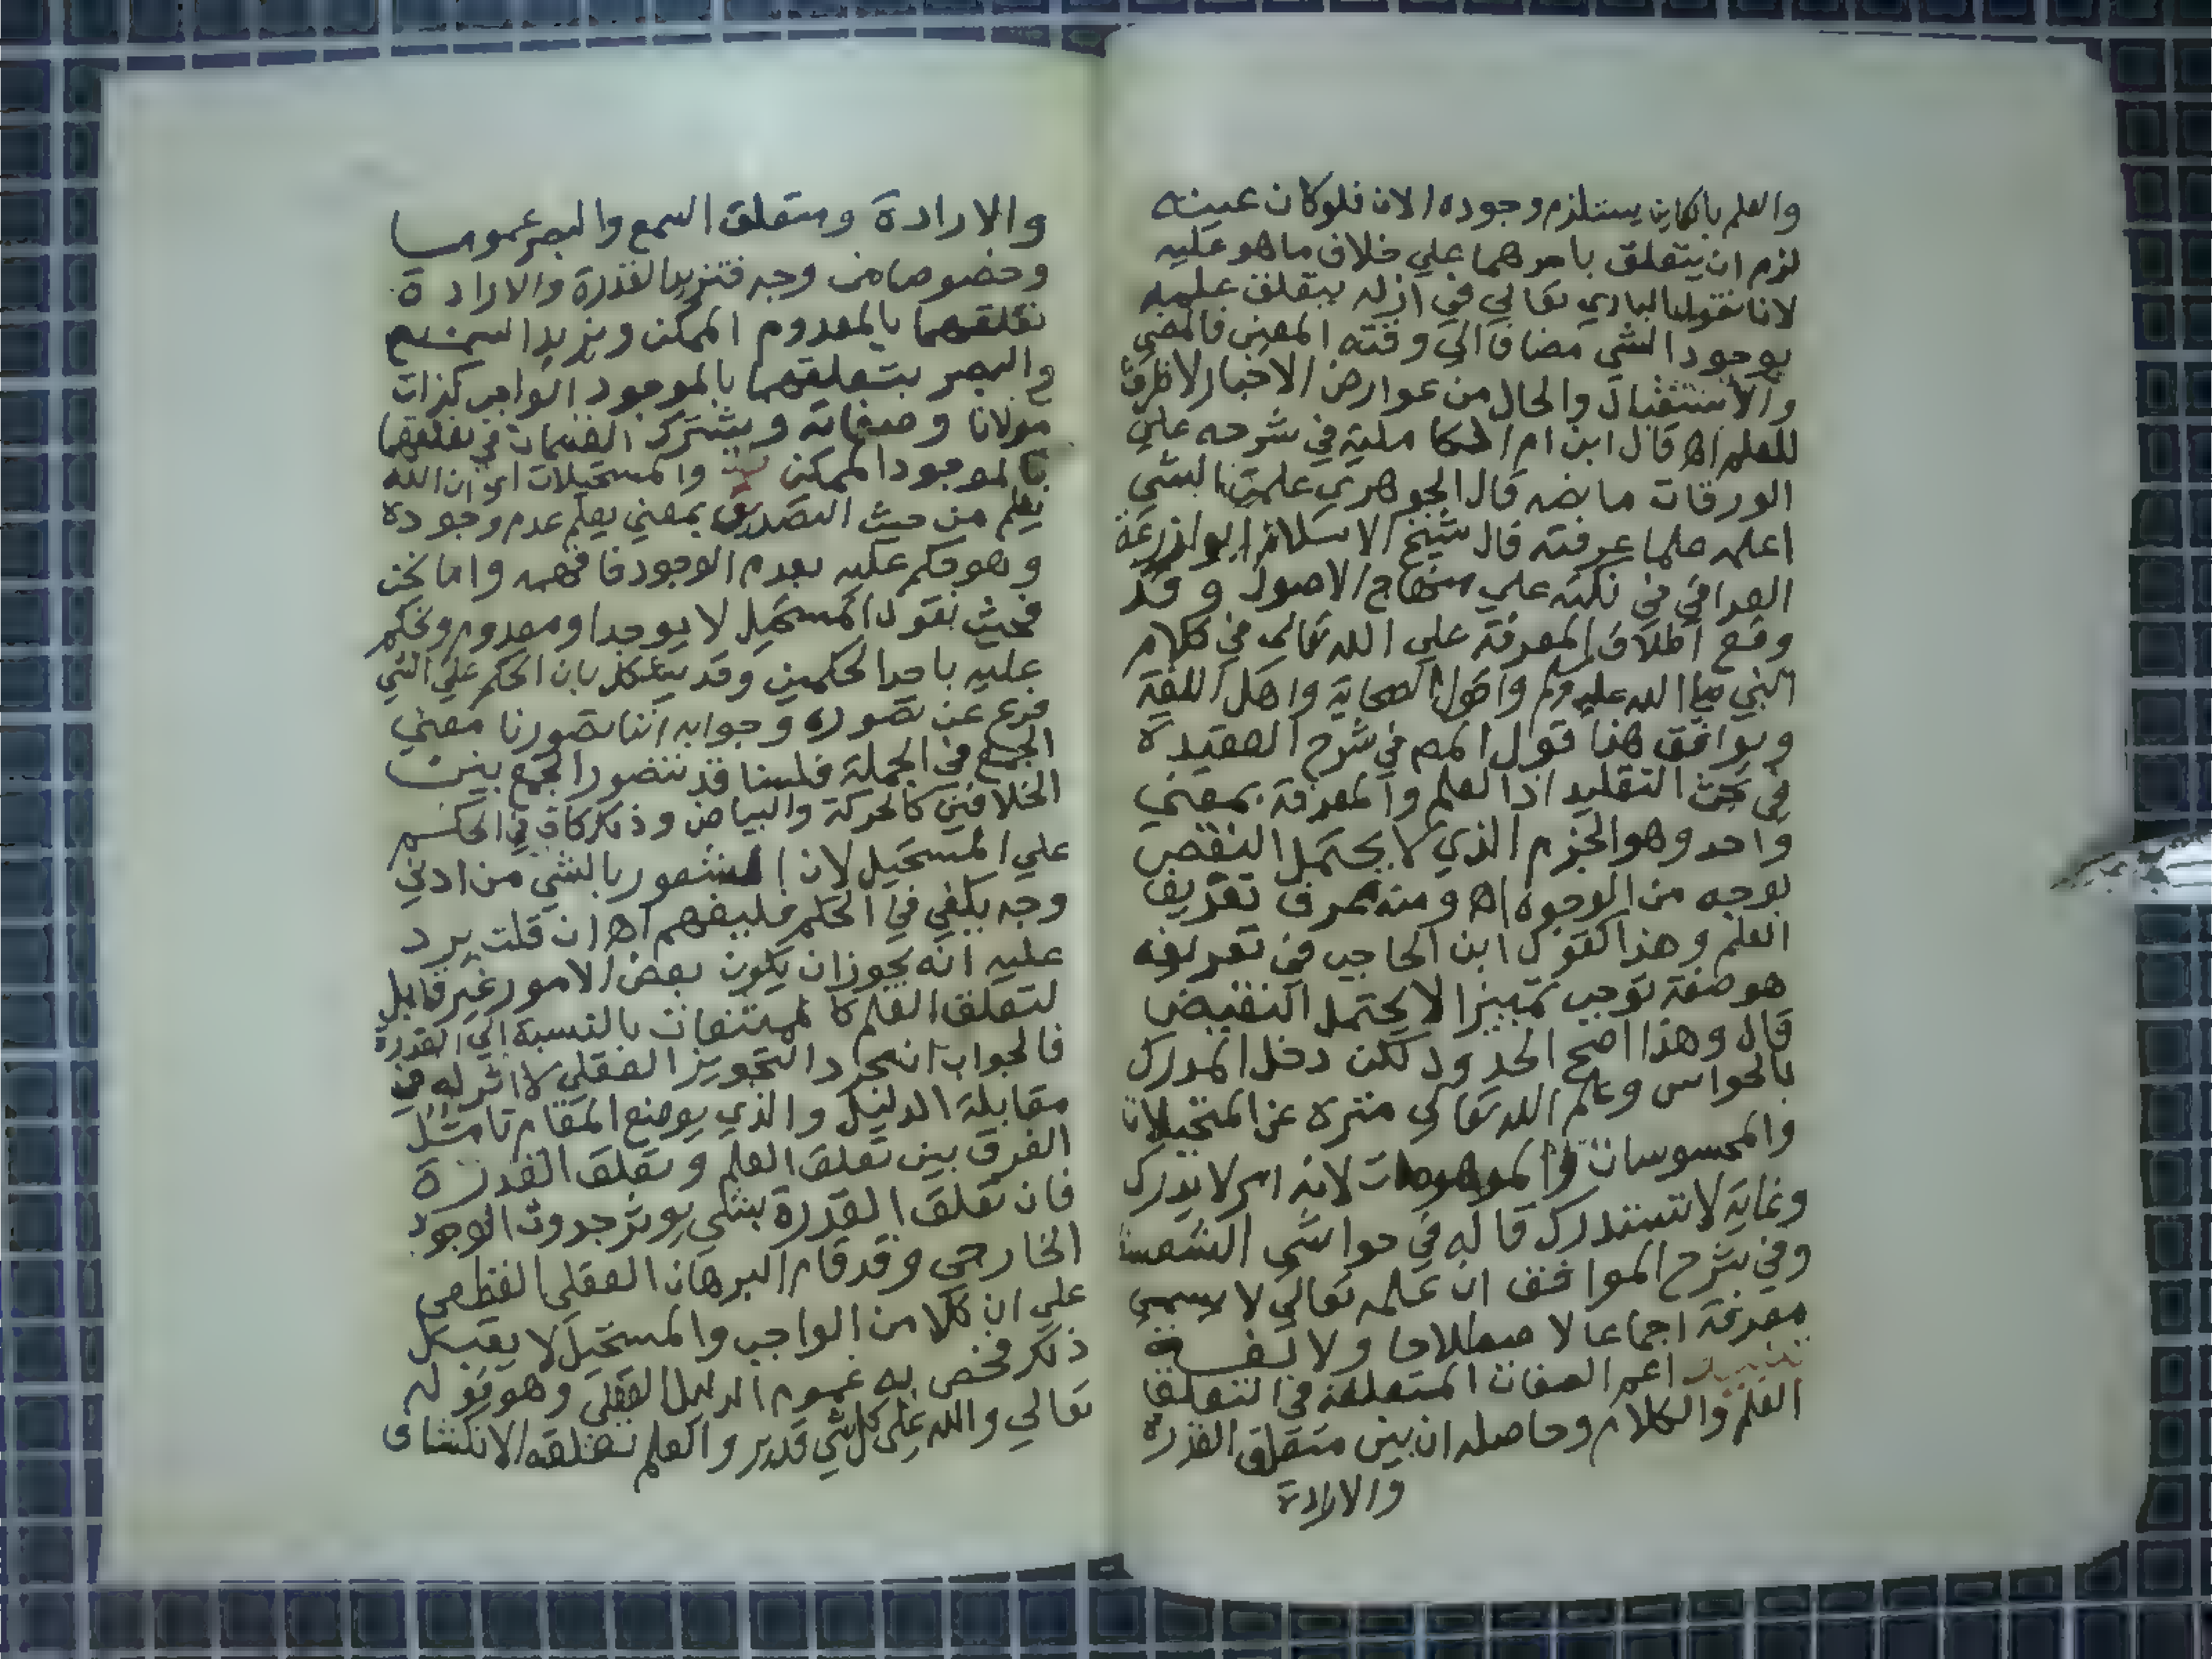 والعلم بالكاين يستلزم وجوده الان فلو كان عينه
لزم ان يتعلق باحدهما علي خلاف ما هو عليه
لانا نقول الباري تعالي في ازله يتعلق علمه
بوجود الشي مضافا الي وقته المعين فالمضي
والاستقبال والحال من عوارض الاخبار لا ظرف
للعلم اه قال ابن امام الكاملية في شرحه علي
الورقات ما نصه قال الجوهري علمت الشي
اعلمه علما عرفته قال شيخ الاسلام ابو زرعة
العراقي في نكته علي منهاج الاصول وقد
وقع اطلاق المعرفة علي الله تعالي في كلام
النبي صلي الله عليه وسلم واقوال الصحابة واهل اللغة
ويوافق هذا قول المص في شرح العقيدة
في بحث التقليد اذ العلم والمعرفة بمعني
واحد وهو الجزم الذي لا يحتمل النقض
بوجه من الوجوه اه ومنه عرف تعريف
العلم وهذا كقول ابن الحاجب في تعريفه
هو صفة توجب تمييزا لا يحتمل النقيض
قال وهذا اصح الحدود لكن دخل المدرك
بالحواس وعلم الله تعالي منزه عن المتخيلات
والمحسوسات والموهومات لانه امر لا يدرك
وغاية لا تستدرك قاله في حواشي
وفي شرح المواقف ان علمه تعالي لا يسمي
معرفة اجماعا لا اصطلاحا ولا لغة
تنبيه اعم الصفات المتعلقة في التعلق
العلم والكلام وحاصله ان بين متعلق القدرة
والارادة
والارادة ومتعلق السمع والبصر عموما
وخصوصا من وجه فتزيد القدرة والارادة
بتعلقهما بالمعدوم الممكن ويزيد السمع
والبصر بتعلقهما بالموجود الواجب كذات
مولانا وصفاته ويشترك القسمان في تعلقهما
بالموجود الممكن والمستحيلات اي ان الله
يعلم من حيث التصديق بمعني يعلم عدم وجوده
وهو حكم عليه بعدم الوجود فافهمه واما نحن
فحيث نقول المستحيل لا يوجد او معدوم ونحكم
عليه باحد الحكمين وقد يشكل بان الحكم علي الشي
فرع عن تصوره وجوابه اننا تصورنا معني
الجمع في الجملة فلسنا قد نتصور الجمع بين
الخلافين كالحركة والبياض وذلك كاف في الحكم
علي المستحيل لان الشعور بالشي من ادني
وجه يكفي في الحكم فليفهم اه ان قلت يرد
عليه انه يجوز ان يكون بعض الامور غير قابل
لتعلق العلم كالممتنعات بالنسبة الي القدرة
فالجواب ان مجرد التجويز العقلي لا اثر له في
مقابلة الدليل والذي يوضح المقام تامل
الفرق بين تعلق العلم وتعلق القدرة
فان تعلق القدرة بشي يوثر حدوث الوجود
الخارجي وقد قام البرهان العقلي القطعي
علي ان كلا من الواجب والمستحيل لا يقبل
ذلك فخص به عموم الدليل النقلي وهو قوله
تعالي والله علي كل شي قدير والعلم تعلقه الانكشاف